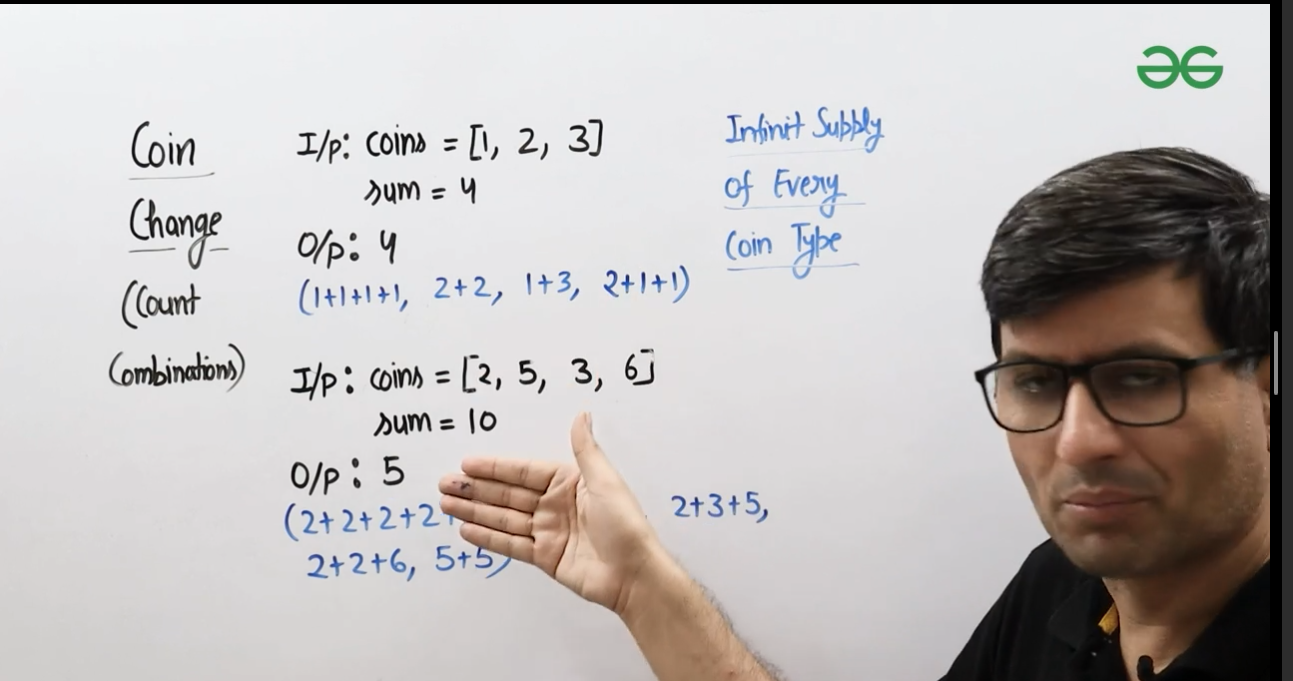 Coin
Change
(Count
Combinations)
I/p: coins = [1, 2, 3]
sum = 4
O/p: 4
(1+1+1+1, 2+2, 1+3, 2+1+1)
I/p: coins = [2, 5, 3, 6]
sum = 10
O/p: 5
(2+2+2+2+ 2+3+5,
2+2+6, 5+5)
Infinit Supply
Of Every
Coin Type